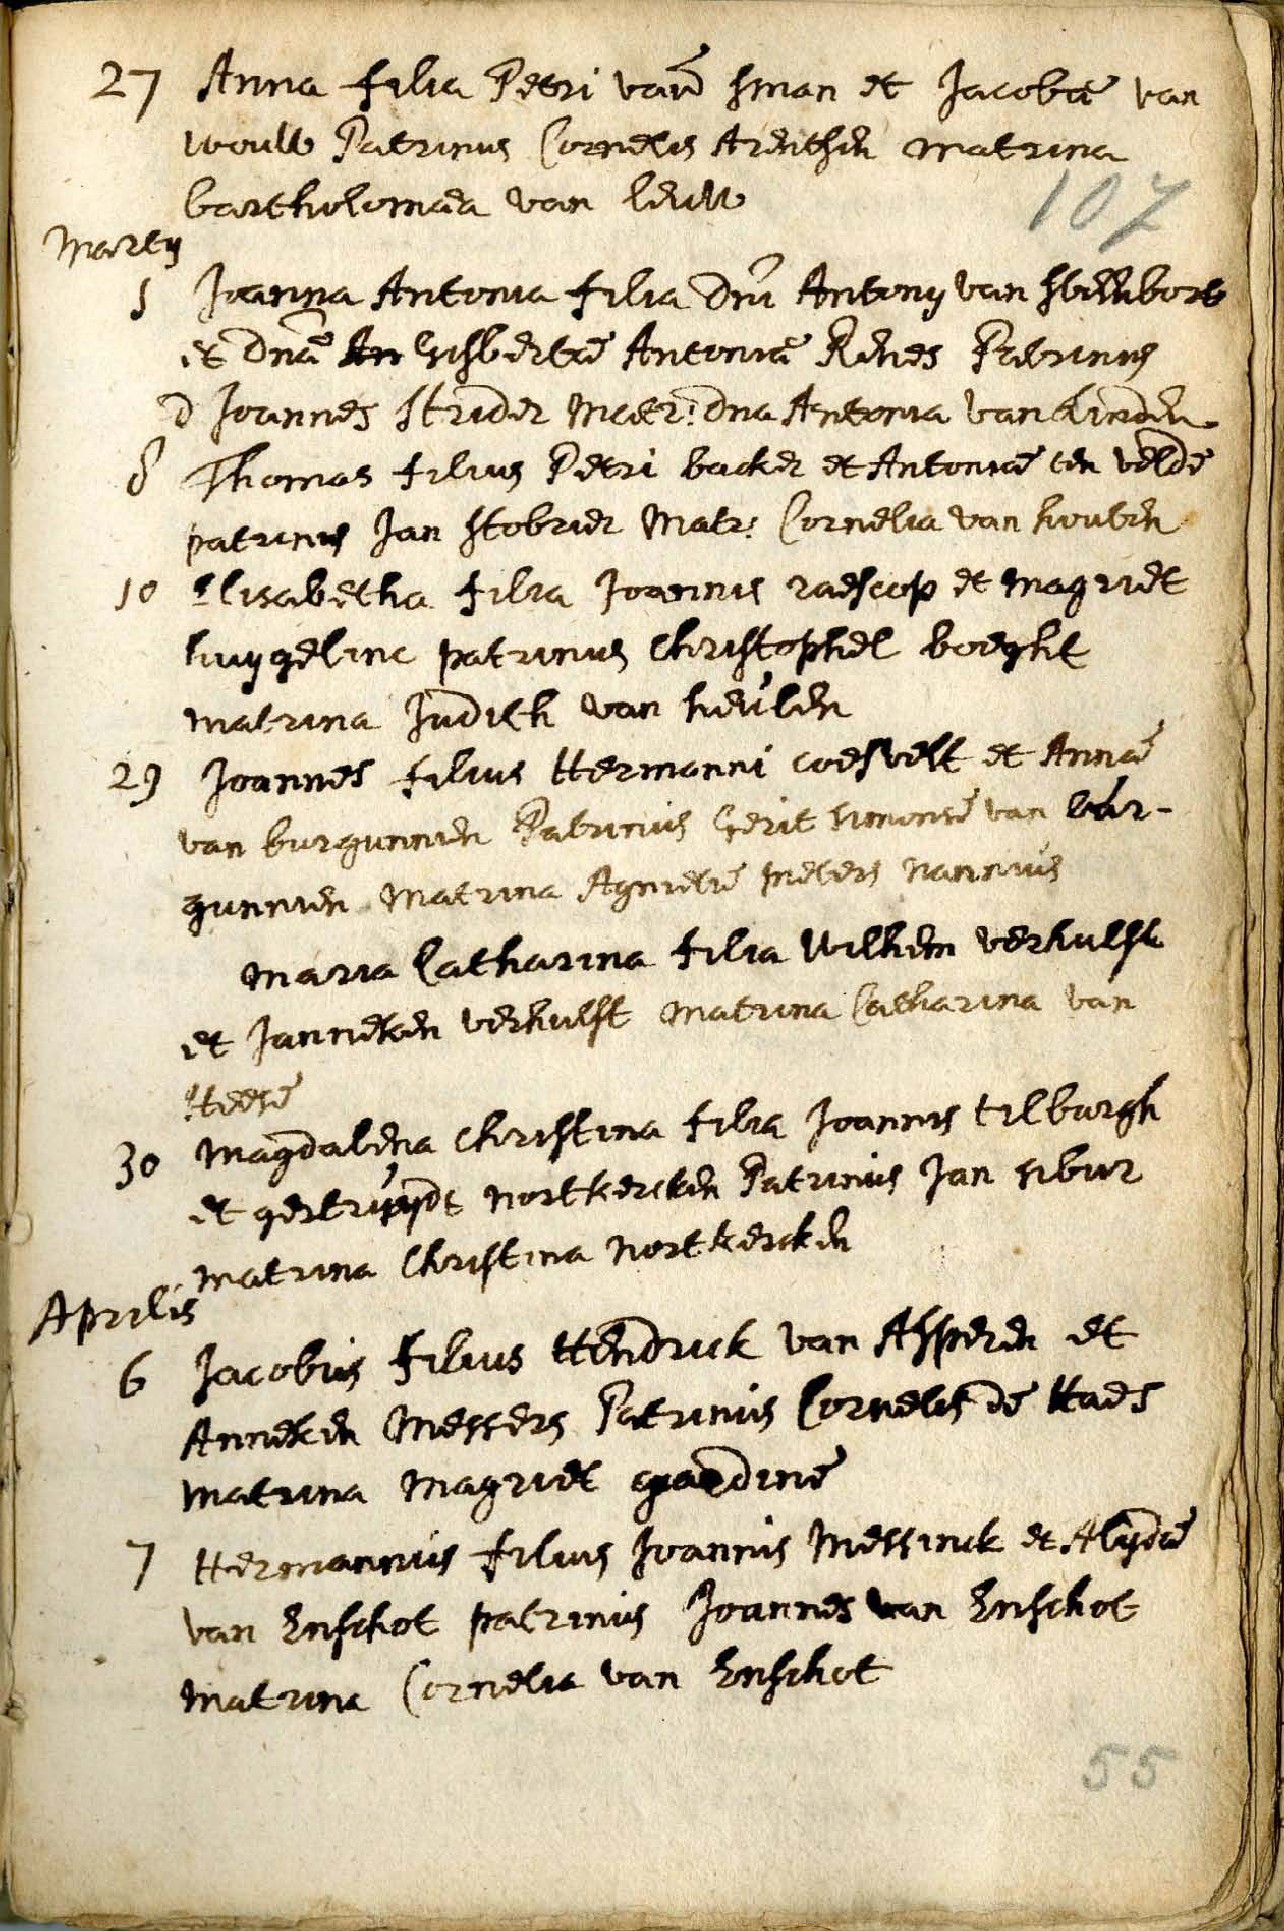 27 Anna filia Petri van sman et Jacobæ van
woull Patrinus Cornelis Arentsen matrina
bartholomæa van leuw
107
Martij
1 Joanna Antonia filia Dni Antonij van
et Dnæ Gisbertæ Antoniæ Renes Patrinus
D Joannes Strider Matr: dna Antonia van Linden
8 Thomas filius Petri backer et Antoniæ ten velde
patrinus Jan Matr: Cornelia van houten
10 Elisabetha filia Joannis raescop et Magriet
huijgelinc patrinus Christophel boeght
matrina Judith van heulen
29 Joannes filius Hermanni coesvelt et Annæ
van burgunnien Patrinus Gerit simonse van bur-
gunnien Matrina Agnietie pieters Nannius
Maria Catharina filia Wilhem verhulst
et Janneken verhulst Matrina Catharina van
Heese
30 Magdalena Christina filia Joannis tilburgh
et gertruijdt nortkercken Patrinus Jan sibur
matrina Christina Nortkercken
Aprilis
6 Jacobus filius Hendrick van Asperen et
Anneken Messers Patrinus Cornelis de Haes
matrina Magriet
7 Hermannus filius Joannis Messinck et Alijdæ
van Enschot patrinus Joannes van Enschot
matrina Cornelia van Enschot
55